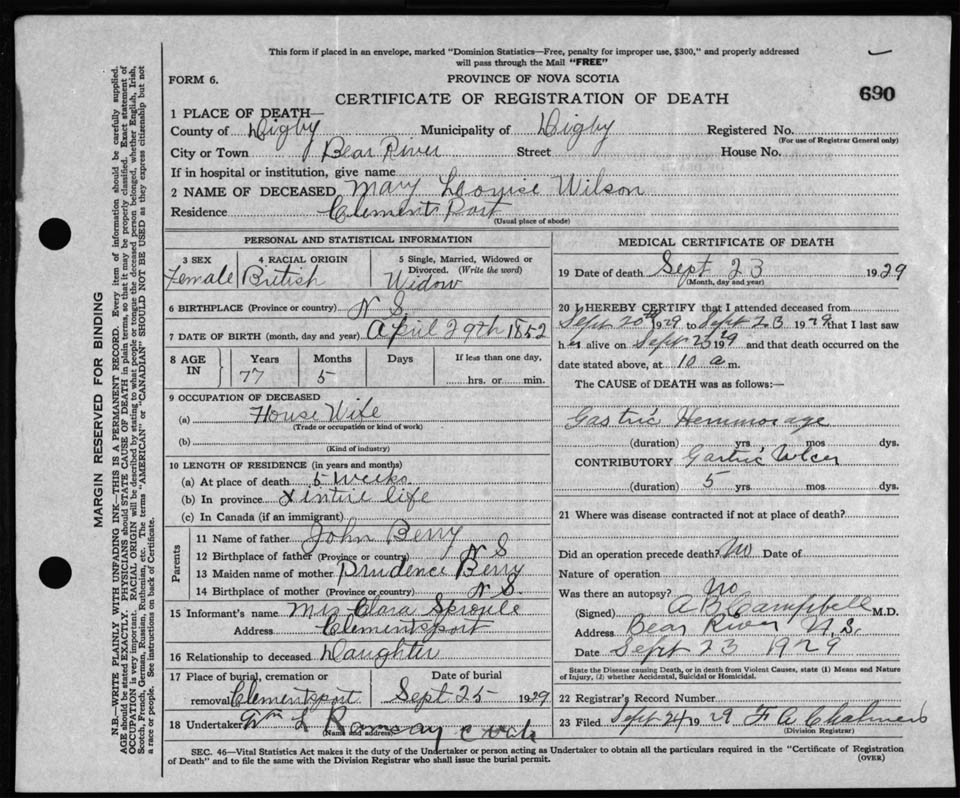 This form if placed in an envelope, marked "Dominion Statistics—Free, penalty for improper use, $300," and properly addressed
will pass through the Mail "FREE"
FORM 6.
PROVINCE OF NOVA SCOTIA
CERTIFICATE OF REGISTRATION OF DEATH
690
1 PLACE OF DEATH—
County of Digby Municipality of Digby Registered No.
(For use of Registrar General only)
City or Town Bear River Street House No.
If in hospital or institution, give name
2 NAME OF DECEASED Mary Louise Wilson
Residence Clements Port
(Usual place of abode)
PERSONAL AND STATISTICAL INFORMATION
3 SEX Female
4 RACIAL ORIGIN British
5 Single, Married, Widowed or
Divorced. (Write the word)
Widow
6 BIRTHPLACE (Province or country) N S.
7 DATE OF BIRTH (month, day and year) April 29th 1852
8 AGE IN
Years Months Days If less than one day,
77 5 hrs. or min.
9 OCCUPATION OF DECEASED
(a) House Wife
(Trade or occupation or kind of work)
(b)
(Kind of industry)
10 LENGTH OF RESIDENCE (in years and months)
(a) At place of death 5 weeks.
(b) In province entire life
(c) In Canada (if an immigrant)
Parents
11 Name of father John Berry
12 Birthplace of father (Province or country) N S
13 Maiden name of mother Prudence Berry
14 Birthplace of mother (Province or country) N S.
15 Informant's name Mrs Clara Sproule
Address Clementsport
16 Relationship to deceased Daughter
17 Place of burial, cremation or Date of burial
removal Clementsport Sept 25 1929
18 Undertaker Wm L Ramsay
(Name and address)
MEDICAL CERTIFICATE OF DEATH
19 Date of death Sept 23 1929
(Month, day and year)
20 I HEREBY CERTIFY that I attended deceased from
Sept 20th 1929 to Sept 23 1929 that I last saw
her alive on Sept 23 1929 and that death occurred on the
date stated above, at 10 a m.
The CAUSE of DEATH was as follows:—
Gastric Hemmorage
(duration) yrs. mos dys.
CONTRIBUTORY Gastric Ulcer
(duration) 5 yrs mos. dys.
21 Where was disease contracted if not at place of death?
Did an operation precede death? No Date of
Nature of operation
Was there an autopsy? No
(Signed) A B Campbell M.D.
Address Bear River N.S.
Date Sept 23 1929
State the Disease causing Death, or in death from Violent Causes, state (1) Means and Nature
of Injury, (2) whether Accidental, Suicidal or Homicidal.
22 Registrar's Record Number
23 Filed Sept 24 1929 F A Chalmers
(Division Registrar)
SEC. 46—Vital Statistics Act makes it the duty of the Undertaker or person acting as Undertaker to obtain all the particulars required in the "Certificate of Registration
of Death" and to file the same with the Division Registrar who shall issue the burial permit.
(OVER)
MARGIN RESERVED FOR BINDING
N.B.—WRITE PLAINLY WITH UNFADING INK—THIS IS A PERMANENT RECORD. Every item of information should be carefully supplied.
AGE should be stated EXACTLY. PHYSICIANS should STATE CAUSE OF DEATH in plain terms, so that it may be properly classified. Exact statement of
OCCUPATION is very important. RACIAL ORIGIN will be described by stating to what people or tongue the deceased person belonged, whether English, Irish,
Scotch, French, German, Russian, Ruthenian, etc. The terms "AMERICAN" or "CANADIAN" SHOULD NOT BE USED as they express citizenship but not
a race of people. See instructions on back of Certificate.